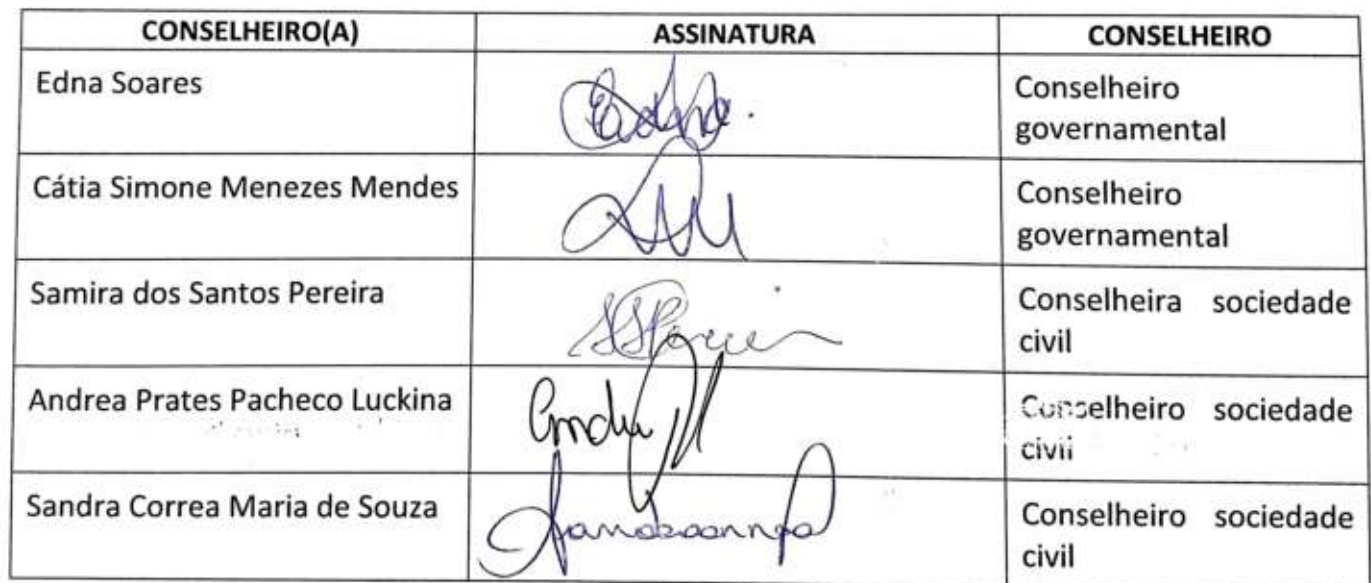 CONSELHEIRO(A) ASSINATURA CONSELHEIRO
Edna Soares Conselheiro
governamental
Cátia Simone Menezes Mendes Conselheiro
governamental
Samira dos Santos Pereira Conselheira sociedade
civil
Andrea Prates Pacheco Luckina Conselheiro sociedade
civil
Sandra Correa Maria de Souza Conselheiro sociedade
civil